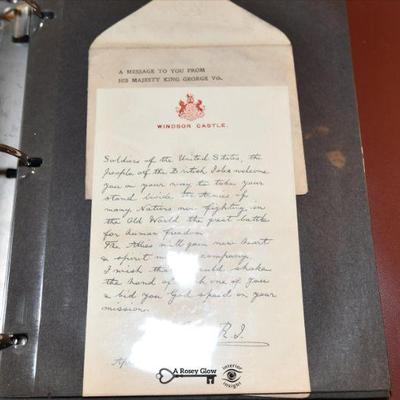 A MESSAGE TO YOU FROM
HIS MAJESTY KING GEORGE Vth.
WINDSOR CASTLE.
Soldiers of the United States, the
people of the British Isles welcome
you on your way to take your
stand beside the Armies of
many Nations now fighting in
the Old World the great battle
for human freedom.
The Allies will gain new heart
& spirit in company.
I wish that I could shake
the hand of each one of you
& bid you God speed on your
mission.
R.I.
A Rosey Glow
interior
insight